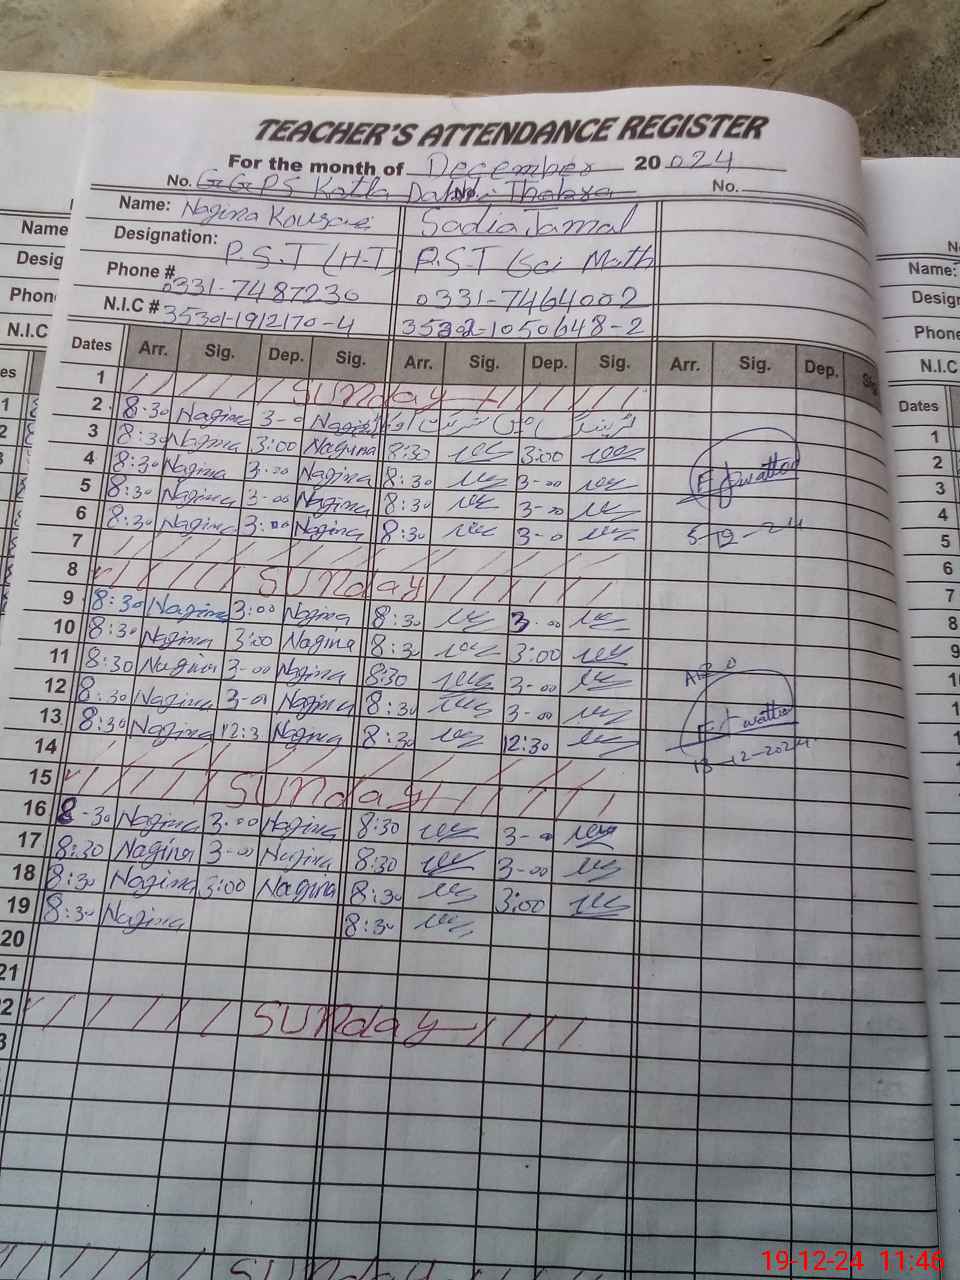 TEACHER'S ATTENDANCE REGISTER
For the month of December 20 024
No. G.G.P.S Kotla No. No.
Name: Nagina Kousar Sadia Jamal
Designation: P.S.T (H.T) P.S.T (Sci Math
Phone # 0331-7487230 0331-7464002
N.I.C # 35301-1912170-4 35302-1050648-2
Dates Arr. Sig. Dep. Sig. Arr. Sig. Dep. Sig. Arr. Sig. Dep. Sig
1 Sunday
2 8:30 Nagina 3-0 Nagina
3 8:30 Nagina 3:00 Nagina 8:30 3:00
4 8:30 Nagina 3:00 Nagina 8:30 3-00
5 8:30 Nagina 3-00 Nagina 8:30 3-00
6 8:30 Nagina 3:00 Nagina 8:30 3-0
5-12-24
7
8 Sunday
9 8:30 Nagina 3:00 Nagina 8:30 3-00
10 8:30 Nagina 3:00 Nagina 8:3 3:00
11 8:30 Nagina 3-00 Nagina 8:30 3-00
12 8:30 Nagina 3-0 Nagina 8:30 3-00
13 8:30 Nagina 12:3 Nagina 8:30 12:30
13-12-2024
14
15 Sunday
16 8-30 Nagina 3:00 Nagina 8:30 3-0
17 8:30 Nagina 3-00 Nagina 8:30 3-00
18 8:30 Nagina 3:00 Nagina 8:30 3:00
19 8:30 Nagina 8:30
20
21
2 Sunday
3
Sunday
Name
Desig
Phon
N.I.C
es
1
2
3
4
5
6
N
Name:
Design
Phone
N.I.C
Dates
1
2
3
4
5
6
7
8
9
10
19-12-24 11:46